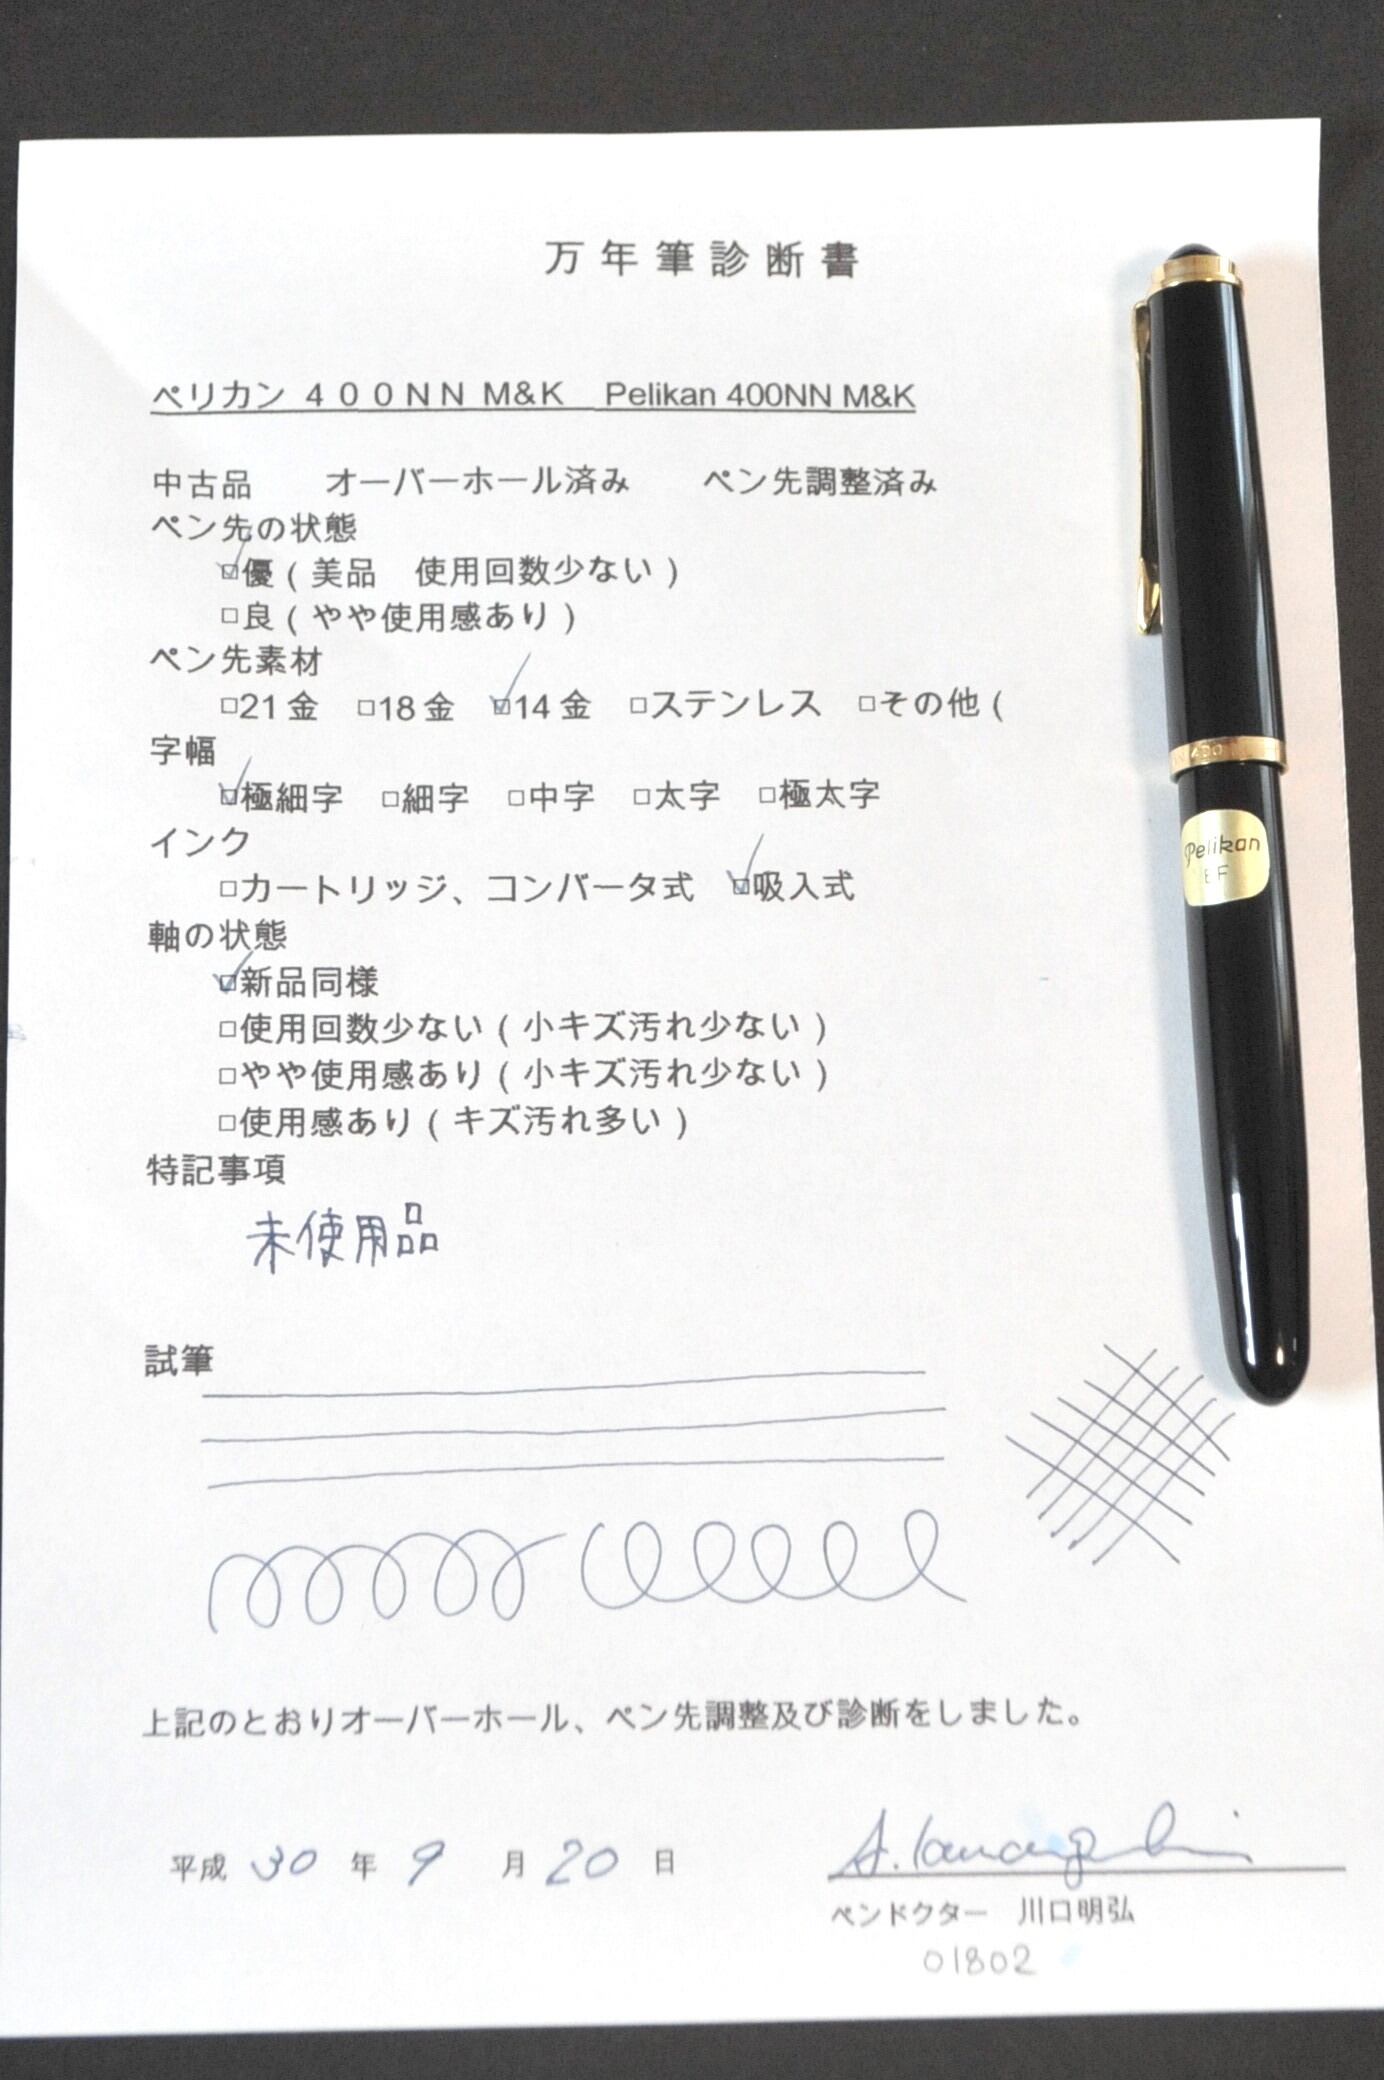 万年筆診断書
ペリカン ４００ＮＮ M&K　Pelikan 400NN M&K
中古品　　オーバーホール済み　　ペン先調整済み
ペン先の状態
☑優（美品　使用回数少ない）
□良（やや使用感あり）
ペン先素材
□21金　□18金　☑14金　□ステンレス　□その他（
字幅
☑極細字　□細字　□中字　□太字　□極太字
インク
□カートリッジ、コンバータ式　☑吸入式
軸の状態
☑新品同様
□使用回数少ない（小キズ汚れ少ない）
□やや使用感あり（小キズ汚れ少ない）
□使用感あり（キズ汚れ多い）
特記事項
未使用品
試筆
上記のとおりオーバーホール、ペン先調整及び診断をしました。
平成 30 年 9 月 20 日
ペンドクター　川口明弘
01802
400
Pelikan
EF